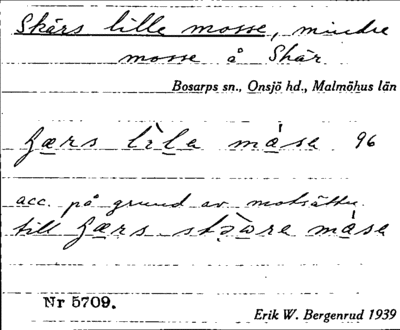 Skärs lille mosse, mindre
mosse å Skär.
Bosarps sn., Onsjö hd., Malmöhus län
lìla måsa 96
acc. på grund av motsättn.
till måsa
Nr 5709.
Erik W. Bergenrud 1939